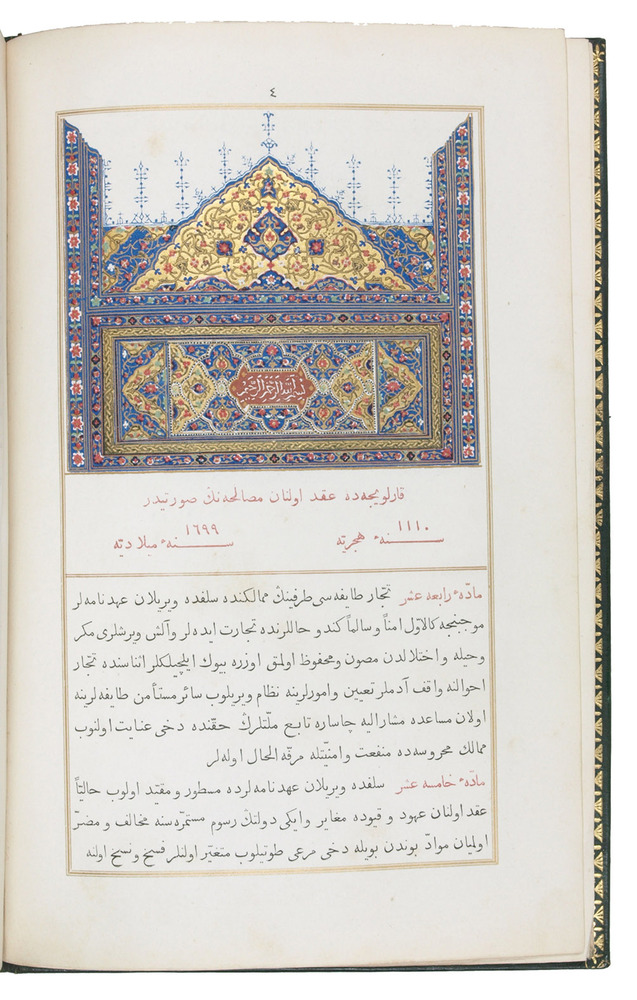 ٤
بسم الله الرحمن الرحيم
قارلويجه‌ده عقد اولنان مصالحه‌نك صورتیدر
سنهٔ هجریه ١١١٠
سنهٔ میلادیه ١٦٩٩
مادّهٔ رابعه عشر تجار طایفه‌سی طرفینك ممالكنده سلفده ویریلان عهدنامه‌لر
موجبنجه كالاوّل امناً و سالماً كندو حاللرنده تجارت ایده‌لر و آلش ویرشلری مكر
و حیله و اختلالدن مصون و محفوظ اولمق اوزره بیوك ایلچیلكلر اثناسنده تجار
احوالنه واقف آدملر تعیین و امورلرینه نظام ویریلوب سائر مستأمن طایفه‌لرینه
اولان مساعده مشار الیه چاساره تابع ملّتلرك حقّنده دخی عنایت اولنوب
ممالك محروسه‌ده منفعت و امنیّتله مرفّه الحال اوله‌لر
مادّهٔ خامسه عشر سلفده ویریلان عهدنامه‌لرده مسطور و مقیّد اولوب حالیّاً
عقد اولنان عهود و قیوده مغایر و ایكی دولتك رسوم مستمرّه‌سنه مخالف و مضرّ
اولمیان موادّ بوندن بویله دخی مرعی طوتیلوب متغیّر اولنلر فسخ و نسخ اولنه